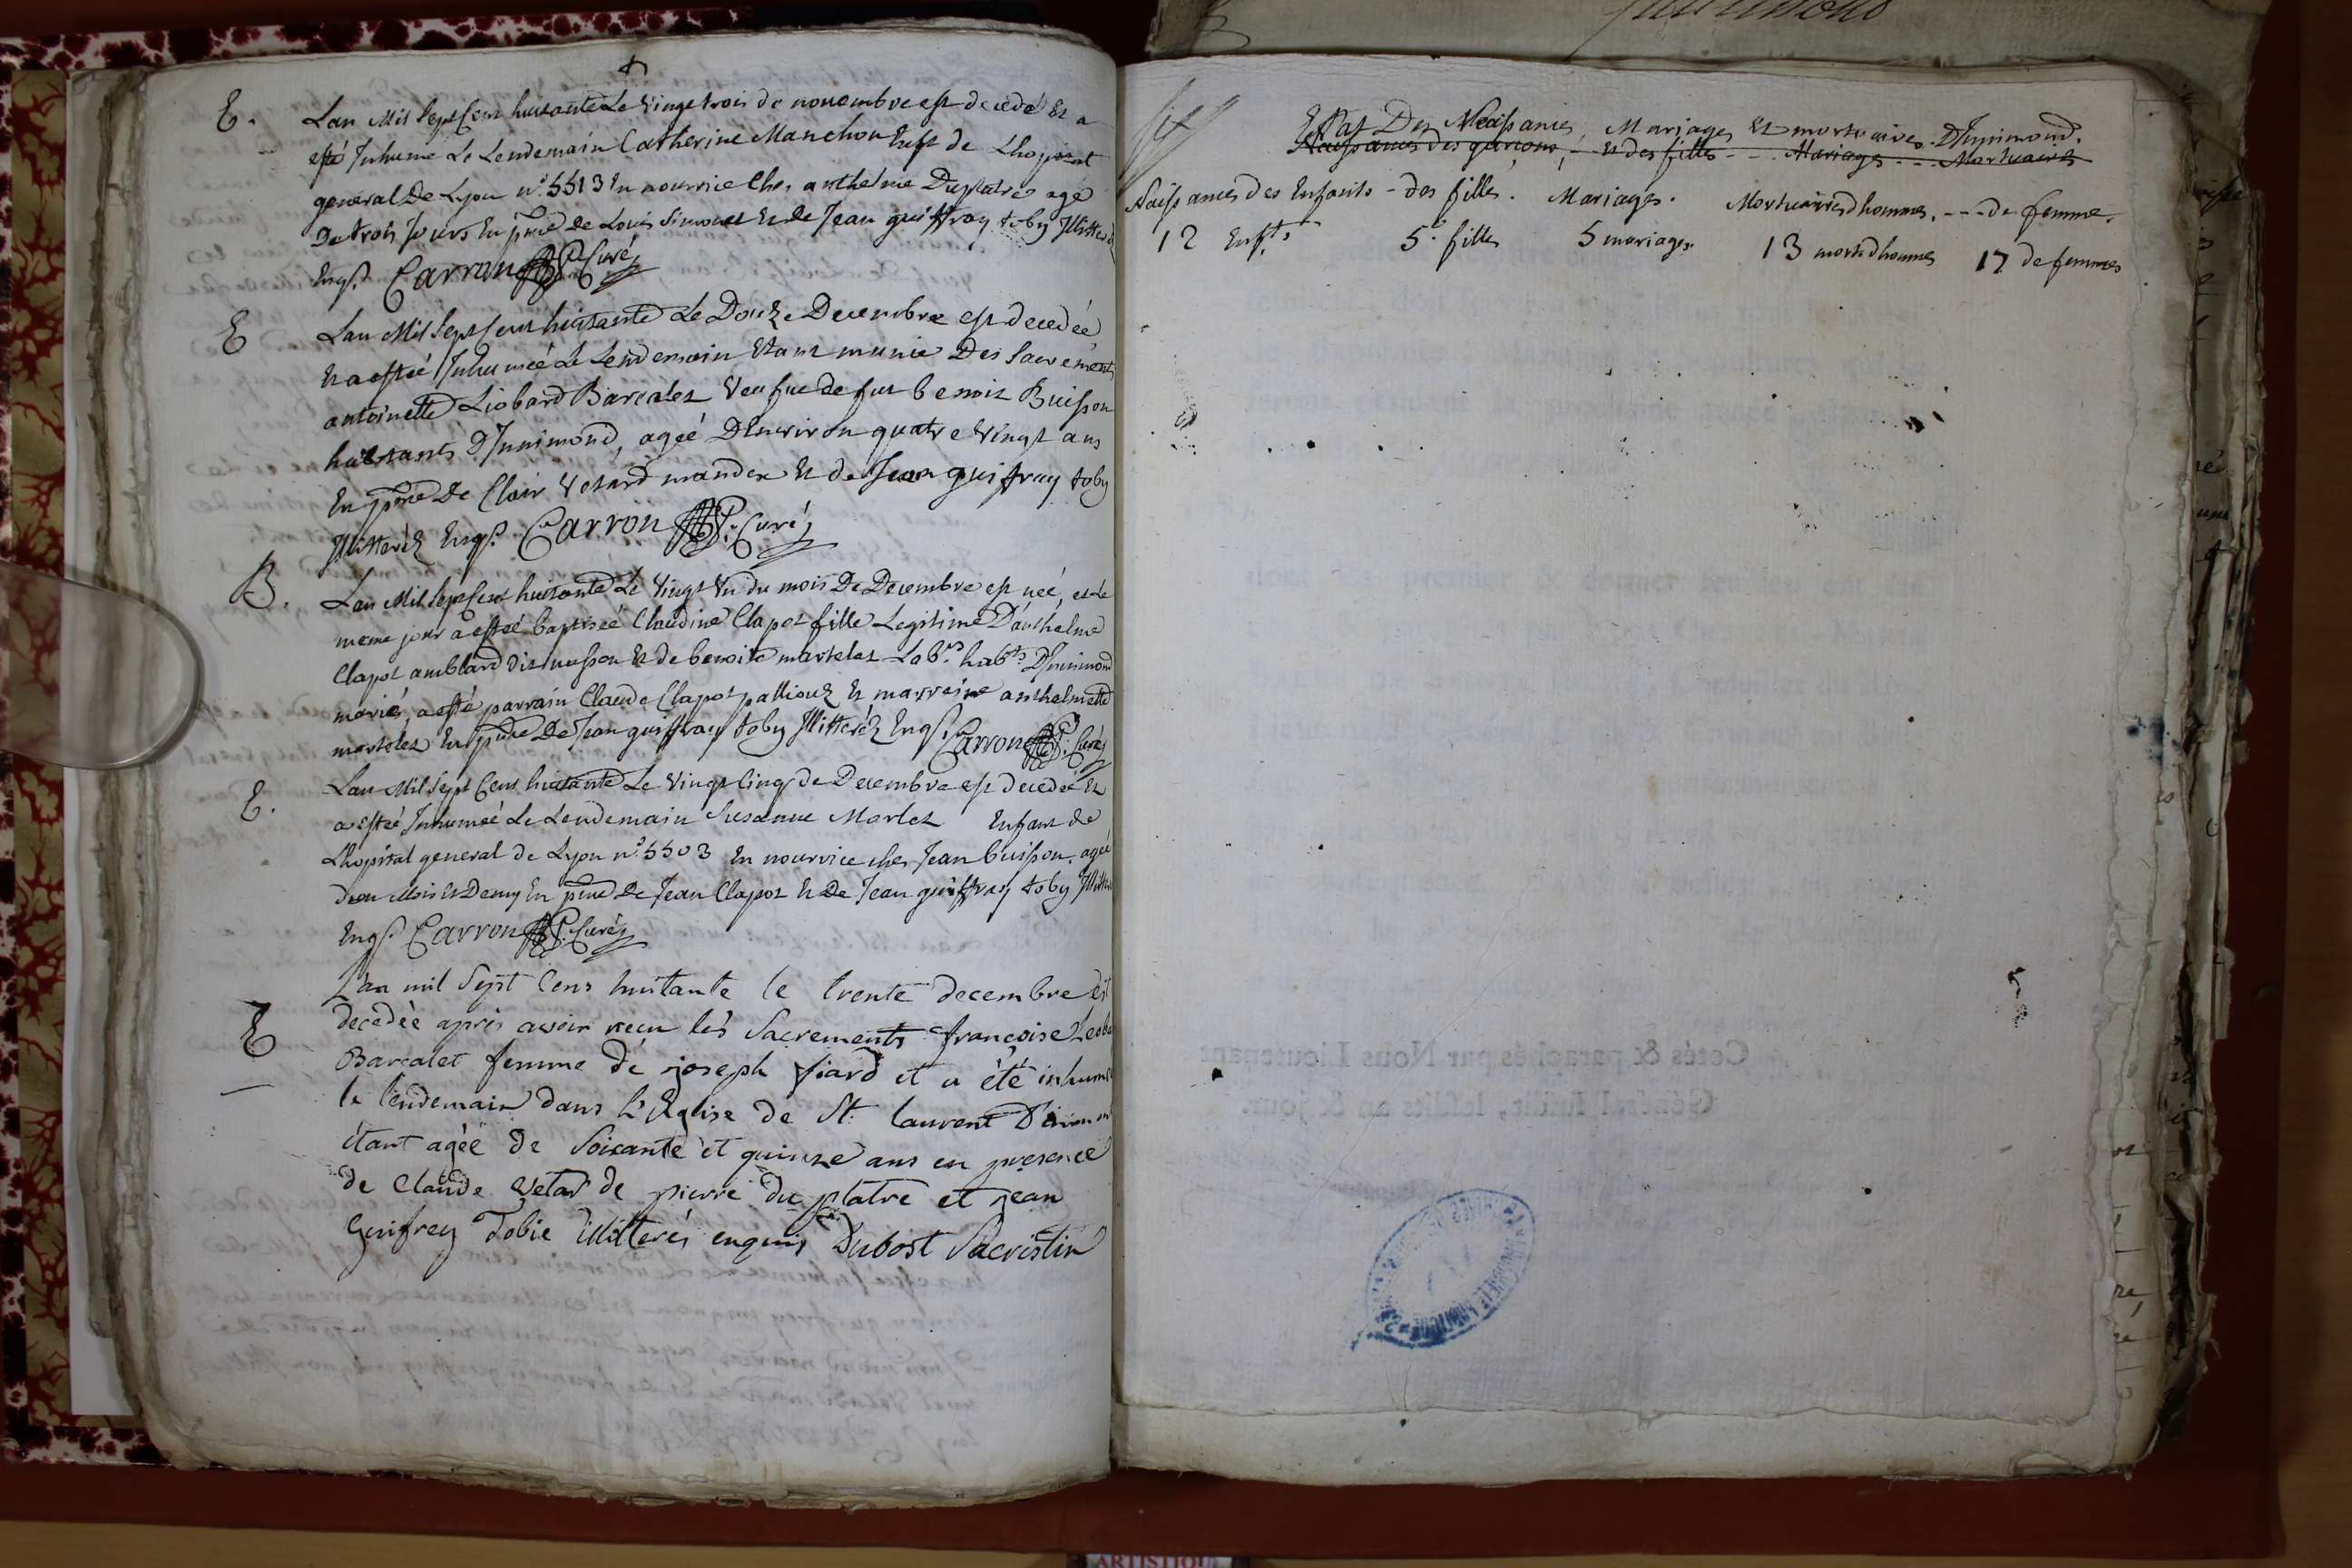 E. Lan Mil Sept Cent huitante Le Vingt trois de novembre est decedé Et a
esté Inhumé Le Lendemain Catherine Manchon Enft de Lhopital
general De Lyon n.° 5513 En nourrice Ches anthelme Duplatre agé
De trois Jours En pnce de Louis Simonet Et de Jean guiffray toby
Enqs. Carron Curé
E Lan Mil Sept Cent huitante Le Douze Decembre est decedée
Et a estée Inhumée Le Lendemain Etant munie Des Sacrements
antoinette Liobard Barcalet Veufue de fut benoit Buisson
habitants DInnimond, agée DEnviron quatre vingt ans
En pnce De Clair Vetard mander Et de Jean guiffray toby
Jllitteréz Enqs. Carron Curé
B. Lan Mil Sept Cent huitante Le Vingt Vn du mois De Decembre est née, et Le
meme jour a estée baptisée Claudine Clapot fille Legitime D'anthelme
Clapot amblard dit musson Et de benoite martelet Lab.rs hab.ts DInnimond
mariés, a esté parrain Claude Clapot pallioud Et marraine anthelmette
martelet En pnce De Jean guiffray toby Jllitteréz Enqs. Carron Curé
E. Lan Mil Sept Cent huitante Le Vingt Cinq de Decembre est decedée Et
a estée Inhumée Le Lendemain Susanne Morlet Enfant de
Lhopital general de Lyon n.° 5503 En nourrice ches Jean buisson. agée
Dun Mois Et Demy En pnce De Jean Clapot Et De Jean guiffray toby
Enqs. Carron Curé
E L'an mil Sept Cens huitante le trente decembre est
decedée après avoir reçu les Sacrements françoise
Barcalet femme de joseph fiard et a été inhumé
le lendemain dans L'Eglise de St. laurent
étant agée de Soixante et quinze ans en presence
de Claude Vetar de pierre du platre et jean
Guifrey Tobie illiterés enquis Dubost Sacristin
Etat Des Naissances, Mariages Et mortuaires DInnimond.
Naissances des garçons, - Et des filles - - - Mariages - - - Mortuaires
Naissances des Enfants - des filles. Mariages. Mortuaires dhommes. - - - de femme.
12 Enfts 5. filles 5 mariages. 13 morts dhommes 17 de femmes
Cotés & paraphés par Nous Lieutenant
Général susdit, lesdits an & jour.
ARTISTIQUE